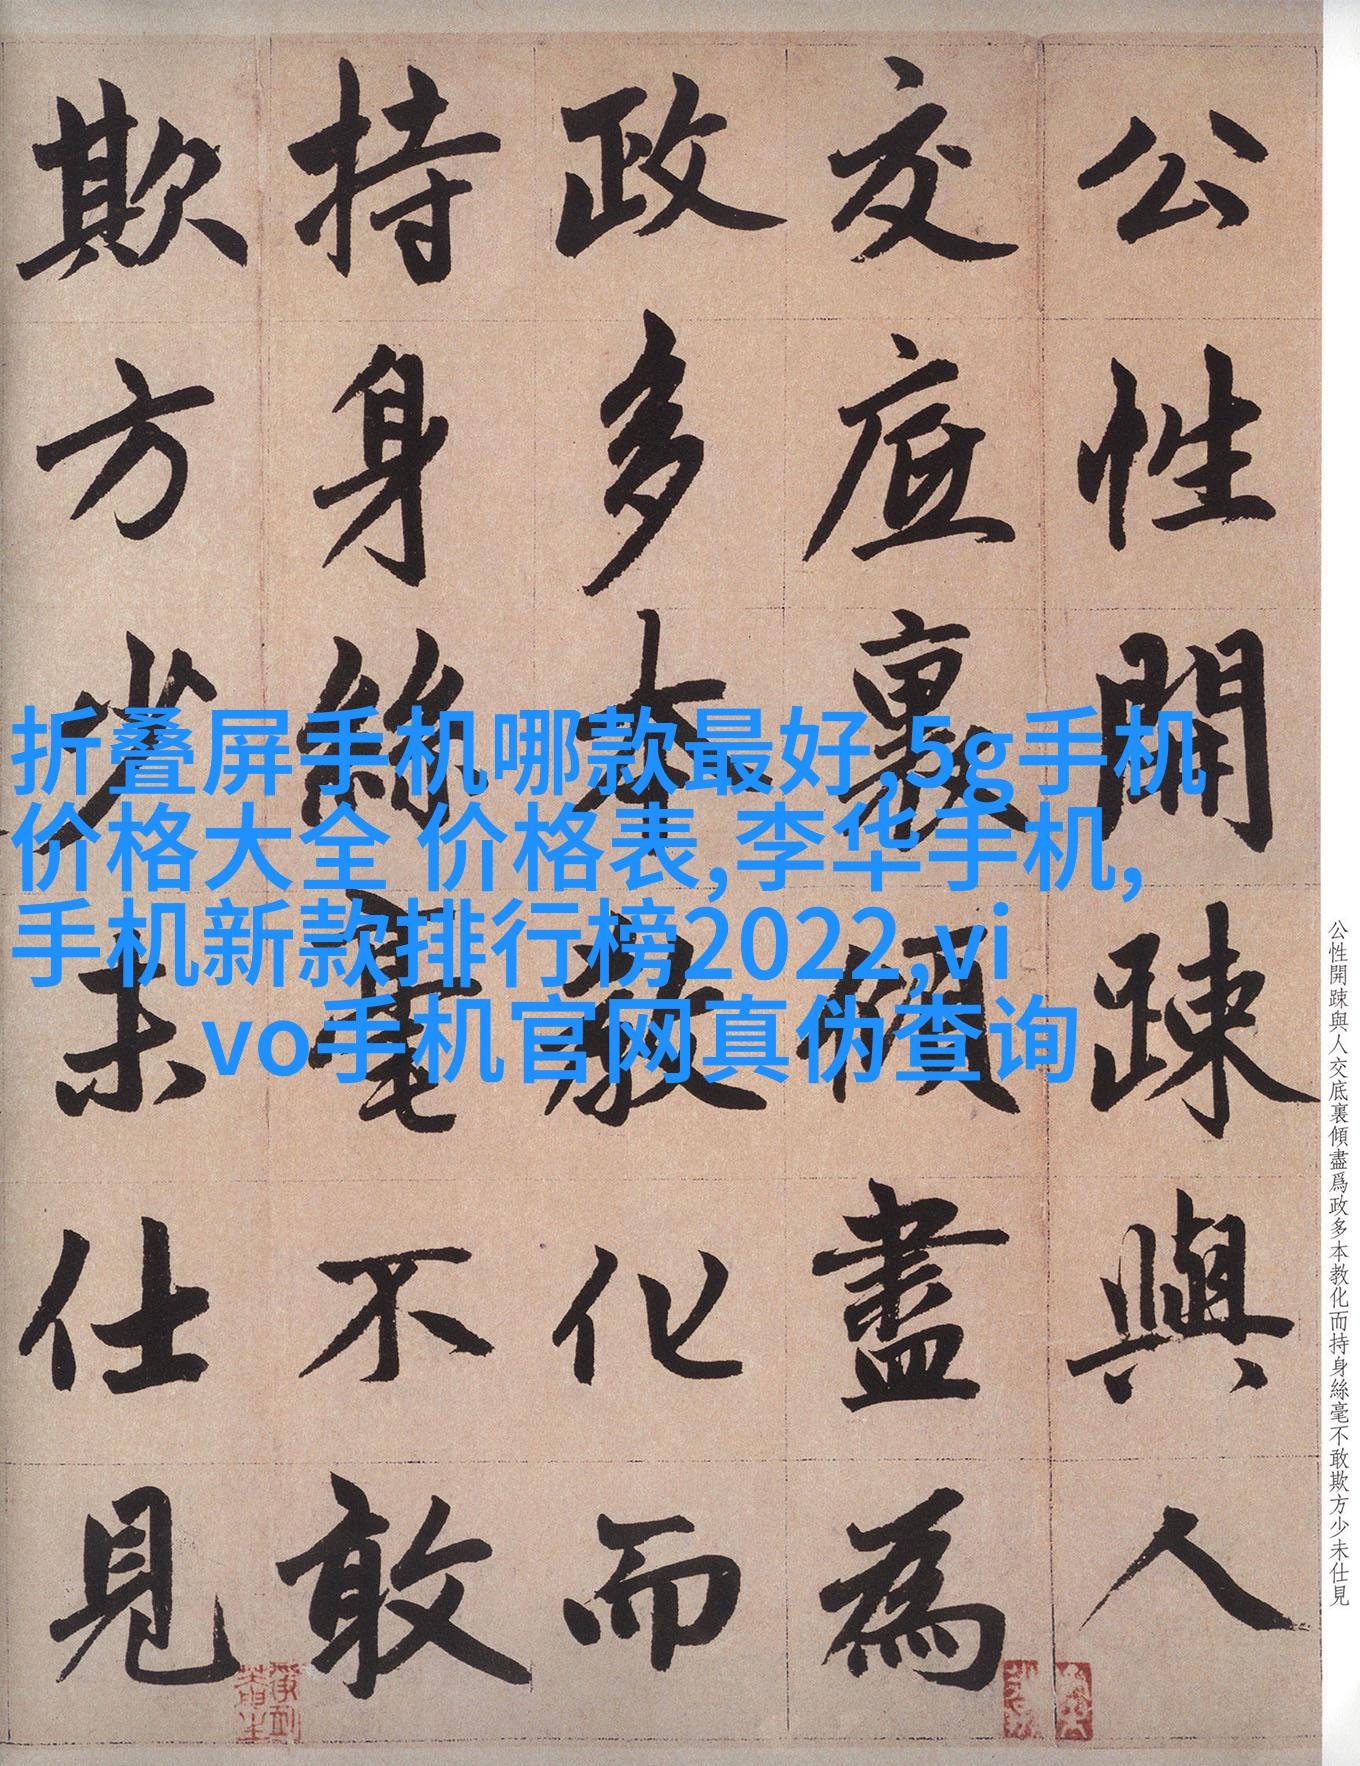 公性開踈與人
交底裏傾盡為
政多本教化而
持身絲毫不敢
欺方少未仕見
折叠屏手机哪款最好,5g手机
价格大全 价格表,李华手机,
手机新款排行榜2022,vi
vo手机官网真伪查询
公性開踈與人交底裏傾盡爲政多本教化而持身絲毫不敢欺方少未仕見